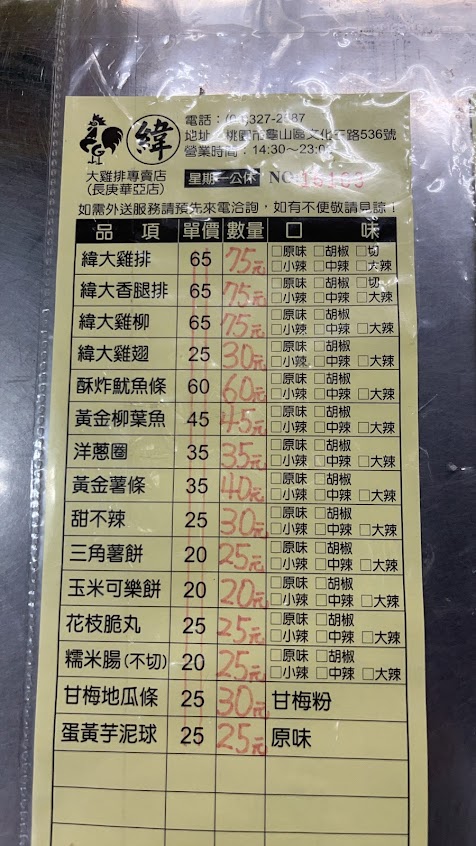 緯
大雞排專賣店
(長庚華亞店)
電話：
地址：桃園市龜山區文化 路536號
營業時間：14:30～23:
星期一公休 NO.
如需外送服務請預先來電洽詢，如有不便敬請見諒！
品 項 單價 數量 口 味
緯大雞排 65 75元 □原味 □胡椒 □切 □小辣 □中辣 □大辣
緯大香腿排 65 75元 □原味 □胡椒 □切 □小辣 □中辣 □大辣
緯大雞柳 65 75元 □原味 □胡椒 □小辣 □中辣 □大辣
緯大雞翅 25 30元 □原味 □胡椒 □小辣 □中辣 □大辣
酥炸魷魚條 60 60元 □原味 □胡椒 □小辣 □中辣 □大辣
黃金柳葉魚 45 45元 □原味 □胡椒 □小辣 □中辣 □大辣
洋蔥圈 35 35元 □原味 □胡椒 □小辣 □中辣 □大辣
黃金薯條 35 40元 □原味 □胡椒 □小辣 □中辣 □大辣
甜不辣 25 30元 □原味 □胡椒 □小辣 □中辣 □大辣
三角薯餅 20 25元 □原味 □胡椒 □小辣 □中辣 □大辣
玉米可樂餅 20 20元 □原味 □胡椒 □小辣 □中辣 □大辣
花枝脆丸 25 25元 □原味 □胡椒 □小辣 □中辣 □大辣
糯米腸(不切) 20 25元 □原味 □胡椒 □小辣 □中辣 □大辣
甘梅地瓜條 25 30元 甘梅粉
蛋黃芋泥球 25 25元 原味